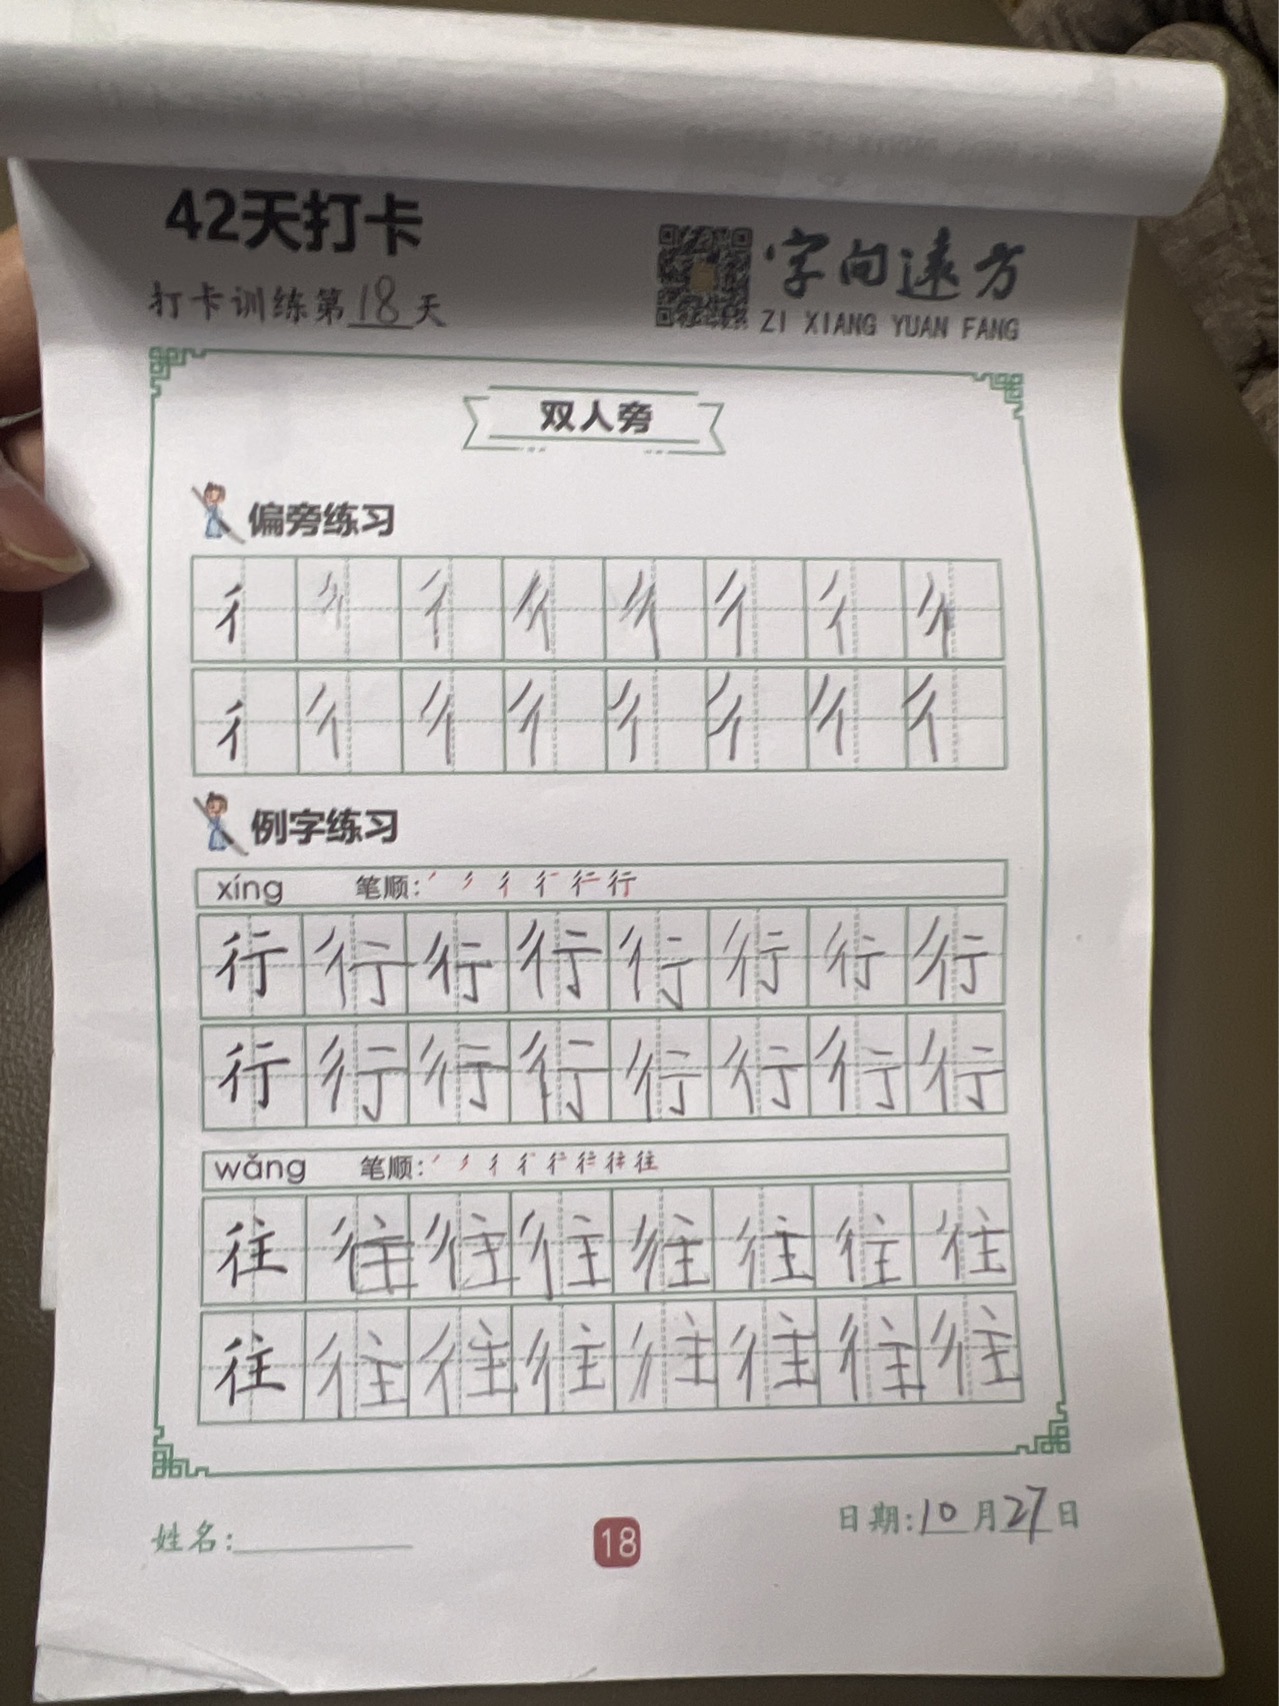 42天打卡
打卡训练第18天
字向远方
ZI XIANG YUAN FANG
双人旁
偏旁练习
彳 彳 彳 彳 彳 彳 彳 彳
彳 彳 彳 彳 彳 彳 彳 彳
例字练习
xíng 笔顺:
行 行 行 行 行 行 行 行
行 行 行 行 行 行 行 行
wǎng 笔顺:
往 往 往 往 往 往 往 往
往 往 往 往 往 往 往 往
姓名:
18
日期:10月27日